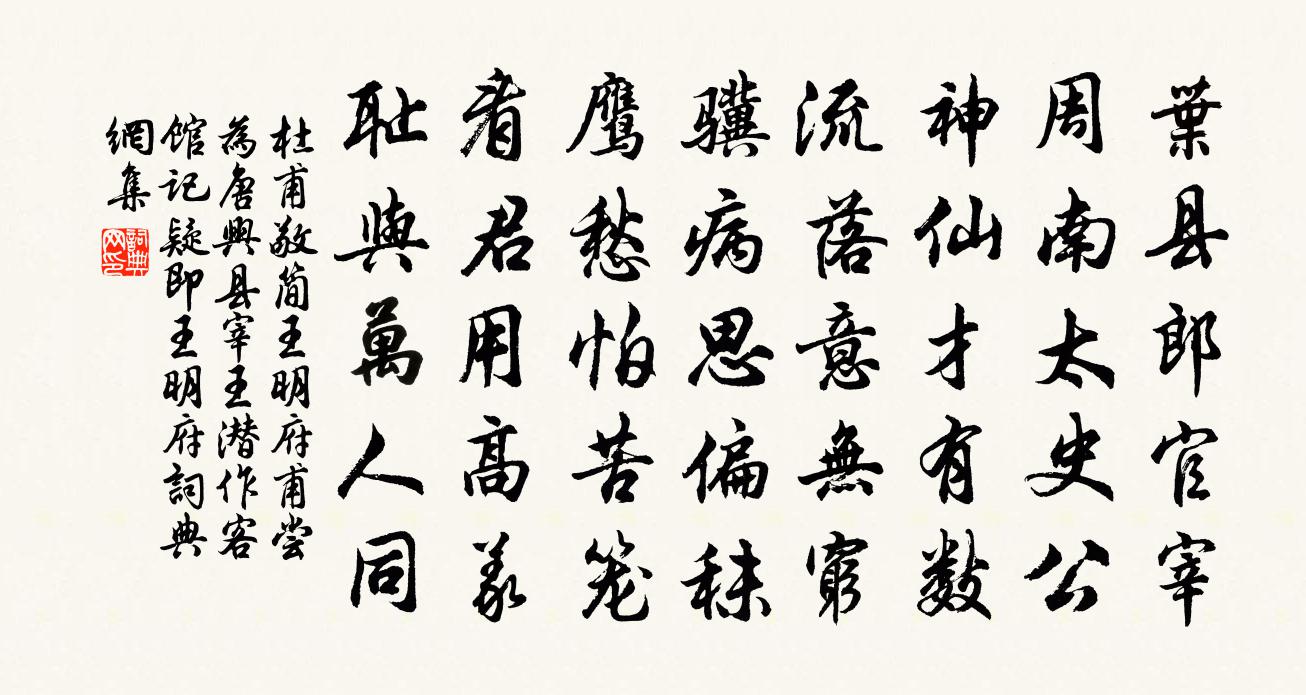 葉县郎官宰
周南太史公
神仙才有数
流落意無窮
骥病思偏秣
鹰愁怕苦笼
看君用高義
耻與萬人同
杜甫敬简王明府甫尝
為唐興县宰王潜作客
馆记疑即王明府詞典
網集
詞典网印